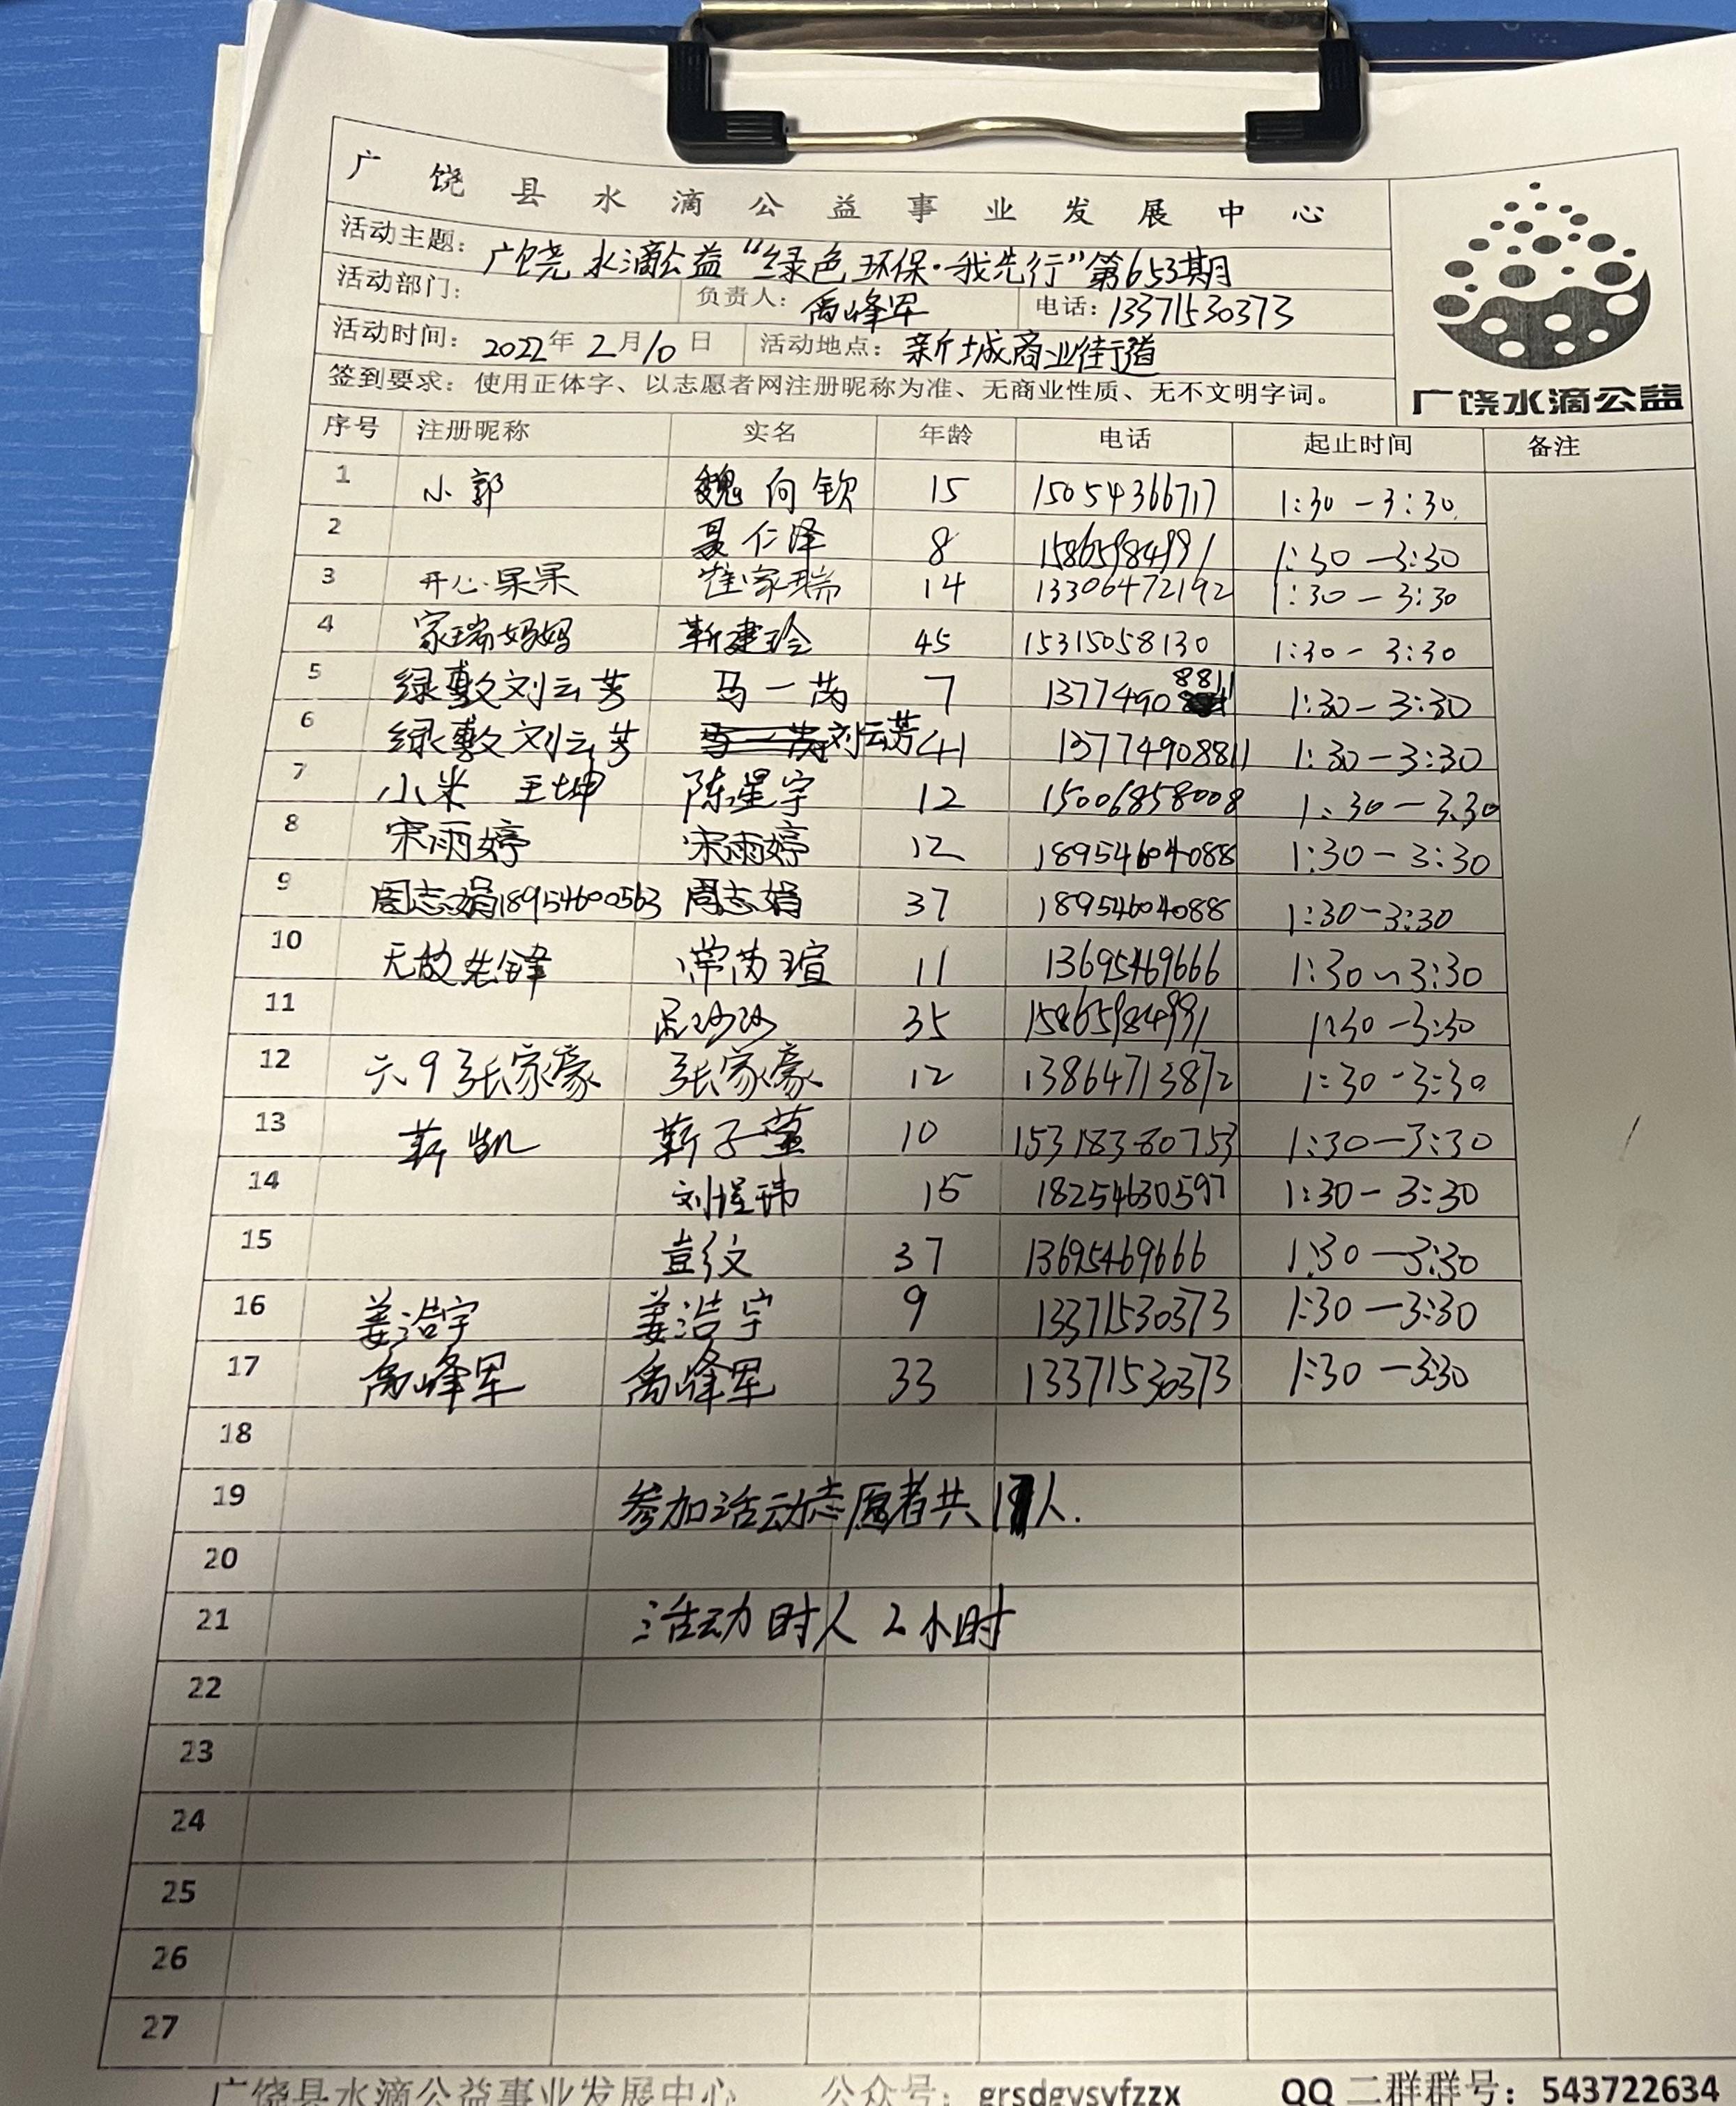 广饶县水滴公益事业发展中心
活动主题：广饶水滴公益“绿色环保·我先行”第653期
活动部门： 负责人：禹峰军 电话：13371530373
活动时间：2022年2月10日 活动地点：新城商业街道
签到要求：使用正体字、以志愿者网注册昵称为准、无商业性质、无不文明字词。
广饶水滴公益
序号 注册昵称 实名 年龄 电话 起止时间 备注
1 小郭 魏向钦 15 15054366717 1:30-3:30
2 聂仁泽 8 15865984991 1:30-3:30
3 开心果果 崔家瑞 14 13306472192 1:30-3:30
4 家瑞妈妈 靳建玲 45 15315058130 1:30-3:30
5 刘云芳 马一芮 7 13774908811 1:30-3:30
6 刘云芳 刘云芳 41 13774908811 1:30-3:30
7 小米 王坤 陈星宇 12 15006858008 1:30-3:30
8 宋雨婷 宋雨婷 12 18954604088 1:30-3:30
9 周志娟18954600563 周志娟 37 18954604088 1:30-3:30
10 无敌先锋 常芮瑄 11 13695469666 1:30~3:30
11 35 15865984991 1:30-3:30
12 六9张家豪 张家豪 12 13864713872 1:30-3:30
13 靳凯 靳子萱 10 15318380753 1:30-3:30
14 15 18254630597 1:30-3:30
15 37 13695469666 1:30-3:30
16 姜浩宇 姜浩宇 9 13371530373 1:30-3:30
17 禹峰军 禹峰军 33 13371530373 1:30-3:30
18
19 参加活动志愿者共17人.
20
21 活动时人2小时
22
23
24
25
26
27
广饶县水滴公益事业发展中心 公众号：grsdgysyfzzx QQ二群群号：543722634